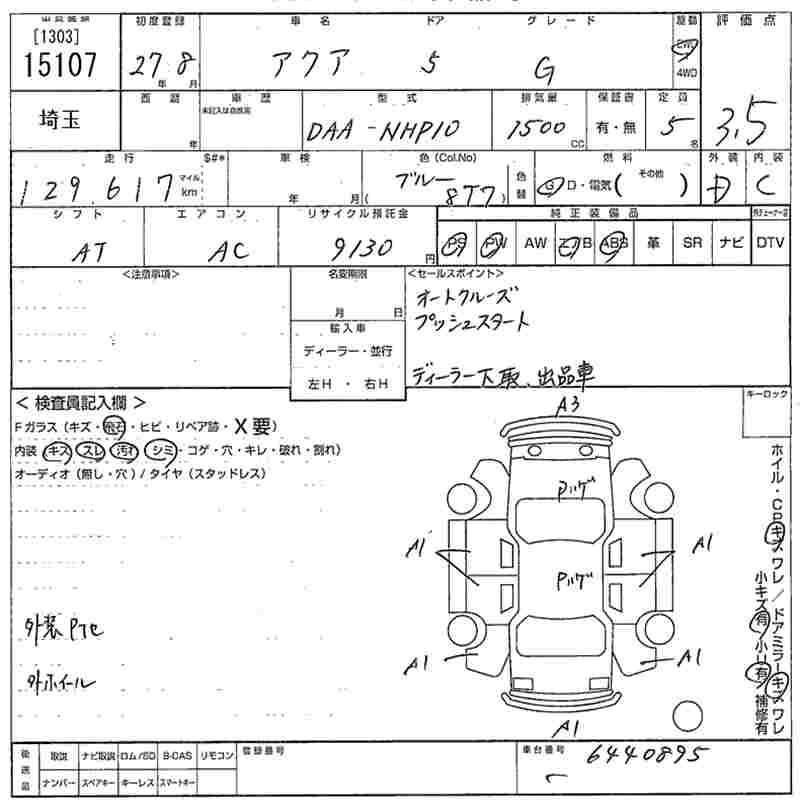 出品番号 初度登録 車名 ドア グレード 駆動 評価点
[1303]
15107 27年8月 アクア 5 G 2WD 4WD 3.5
埼玉 西暦 年 車歴 未記入は自家用 型式 DAA-NHP10 排気量 1500 CC 保証書 有・無 定員 5名
走行 $#* 車検 色(Col.No) 燃料 外装 内装
129,617 マイル km 年 月 ( ブルー 8T7 ) 色替 G D・電気( その他 ) D C
シフト エアコン リサイクル預託金 純正装備品
AT AC 9130円 PS PW AW エアB ABS 革 SR ナビ DTV
<注意事項> 名変期限 <セールスポイント>
月 日 オートクルーズ
輸入車 プッシュスタート
ディーラー・並行
左H ・ 右H ディーラー下取.出品車
< 検査員記入欄 > A3 キーロック
Fガラス(キズ・飛石・ヒビ・リペア跡・X要)
内装(キズ・スレ・汚れ・シミ・コゲ・穴・キレ・破れ・割れ)
オーディオ(無し・穴)/タイヤ(スタッドレス)
Pハゲ
A1 A1
Pハゲ
外装 Pftセ
A1 A1
外ホイール
A1
ホイル・CPキズワレ/ドアミラーキズワレ
小キズ有 小凹有 補修有
後送品 取説 ナビ取説 ロム/SD B-CAS リモコン 登録番号 車台番号 6440895
ナンバー スペアキー キーレス スマートキー